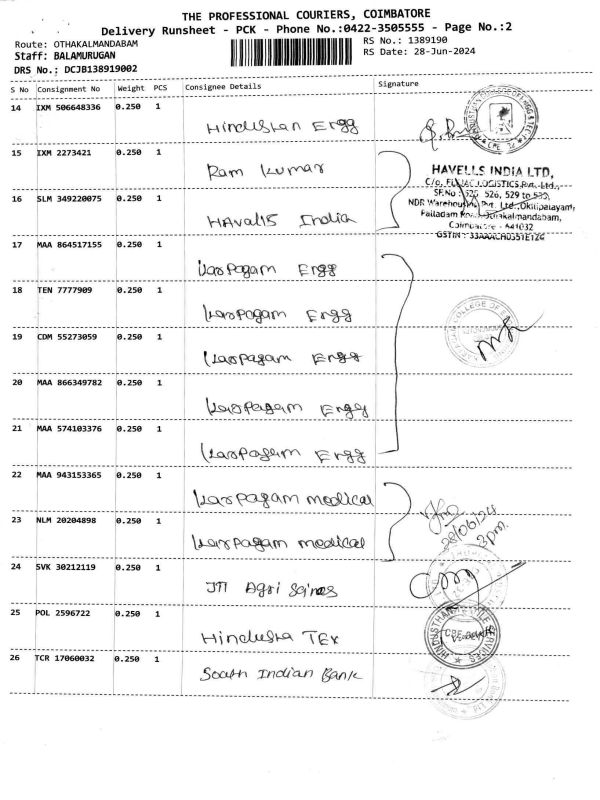 THE PROFESSIONAL COURIERS, COIMBATORE
Delivery Runsheet - PCK - Phone No.:0422-3505555 - Page No.:2
Route: OTHAKALMANDABAM
RS No.: 1389190
Staff: BALAMURUGAN
RS Date: 28-Jun-2024
DRS No.: DCJB138919002
S No Consignment No Weight PCS Consignee Details Signature
14 IXM 506648336 0.250 1
Hindustan Engg
15 IXM 2273421 0.250 1
Ram Kumar
16 SLM 349220075 0.250 1
HAvalls India
HAVELLS INDIA LTD,
C/o, LOGISTICS Pvt. Ltd.,
SF.No : 525, 526, 529 to 533,
NDR Warehousing Pvt. Ltd., Okilipalayam,
Palladam Road, Othakalmandabam,
Coimbatore - 641032
GSTIN :
17 MAA 864517155 0.250 1
Karpagam Engg
18 TEN 7777909 0.250 1
Karpagam Engg
19 CDM 55273059 0.250 1
Karpagam Engg
20 MAA 866349782 0.250 1
Karpagam Engg
21 MAA 574103376 0.250 1
Karpagam Engg
22 MAA 943153365 0.250 1
Karpagam medical
23 NLM 20204898 0.250 1
Karpagam medical
28/06/24
3pm.
24 SVK 30212119 0.250 1
JTI Agri
25 POL 2596722 0.250 1
Hindustha TEx
26 TCR 17060032 0.250 1
South Indian Bank